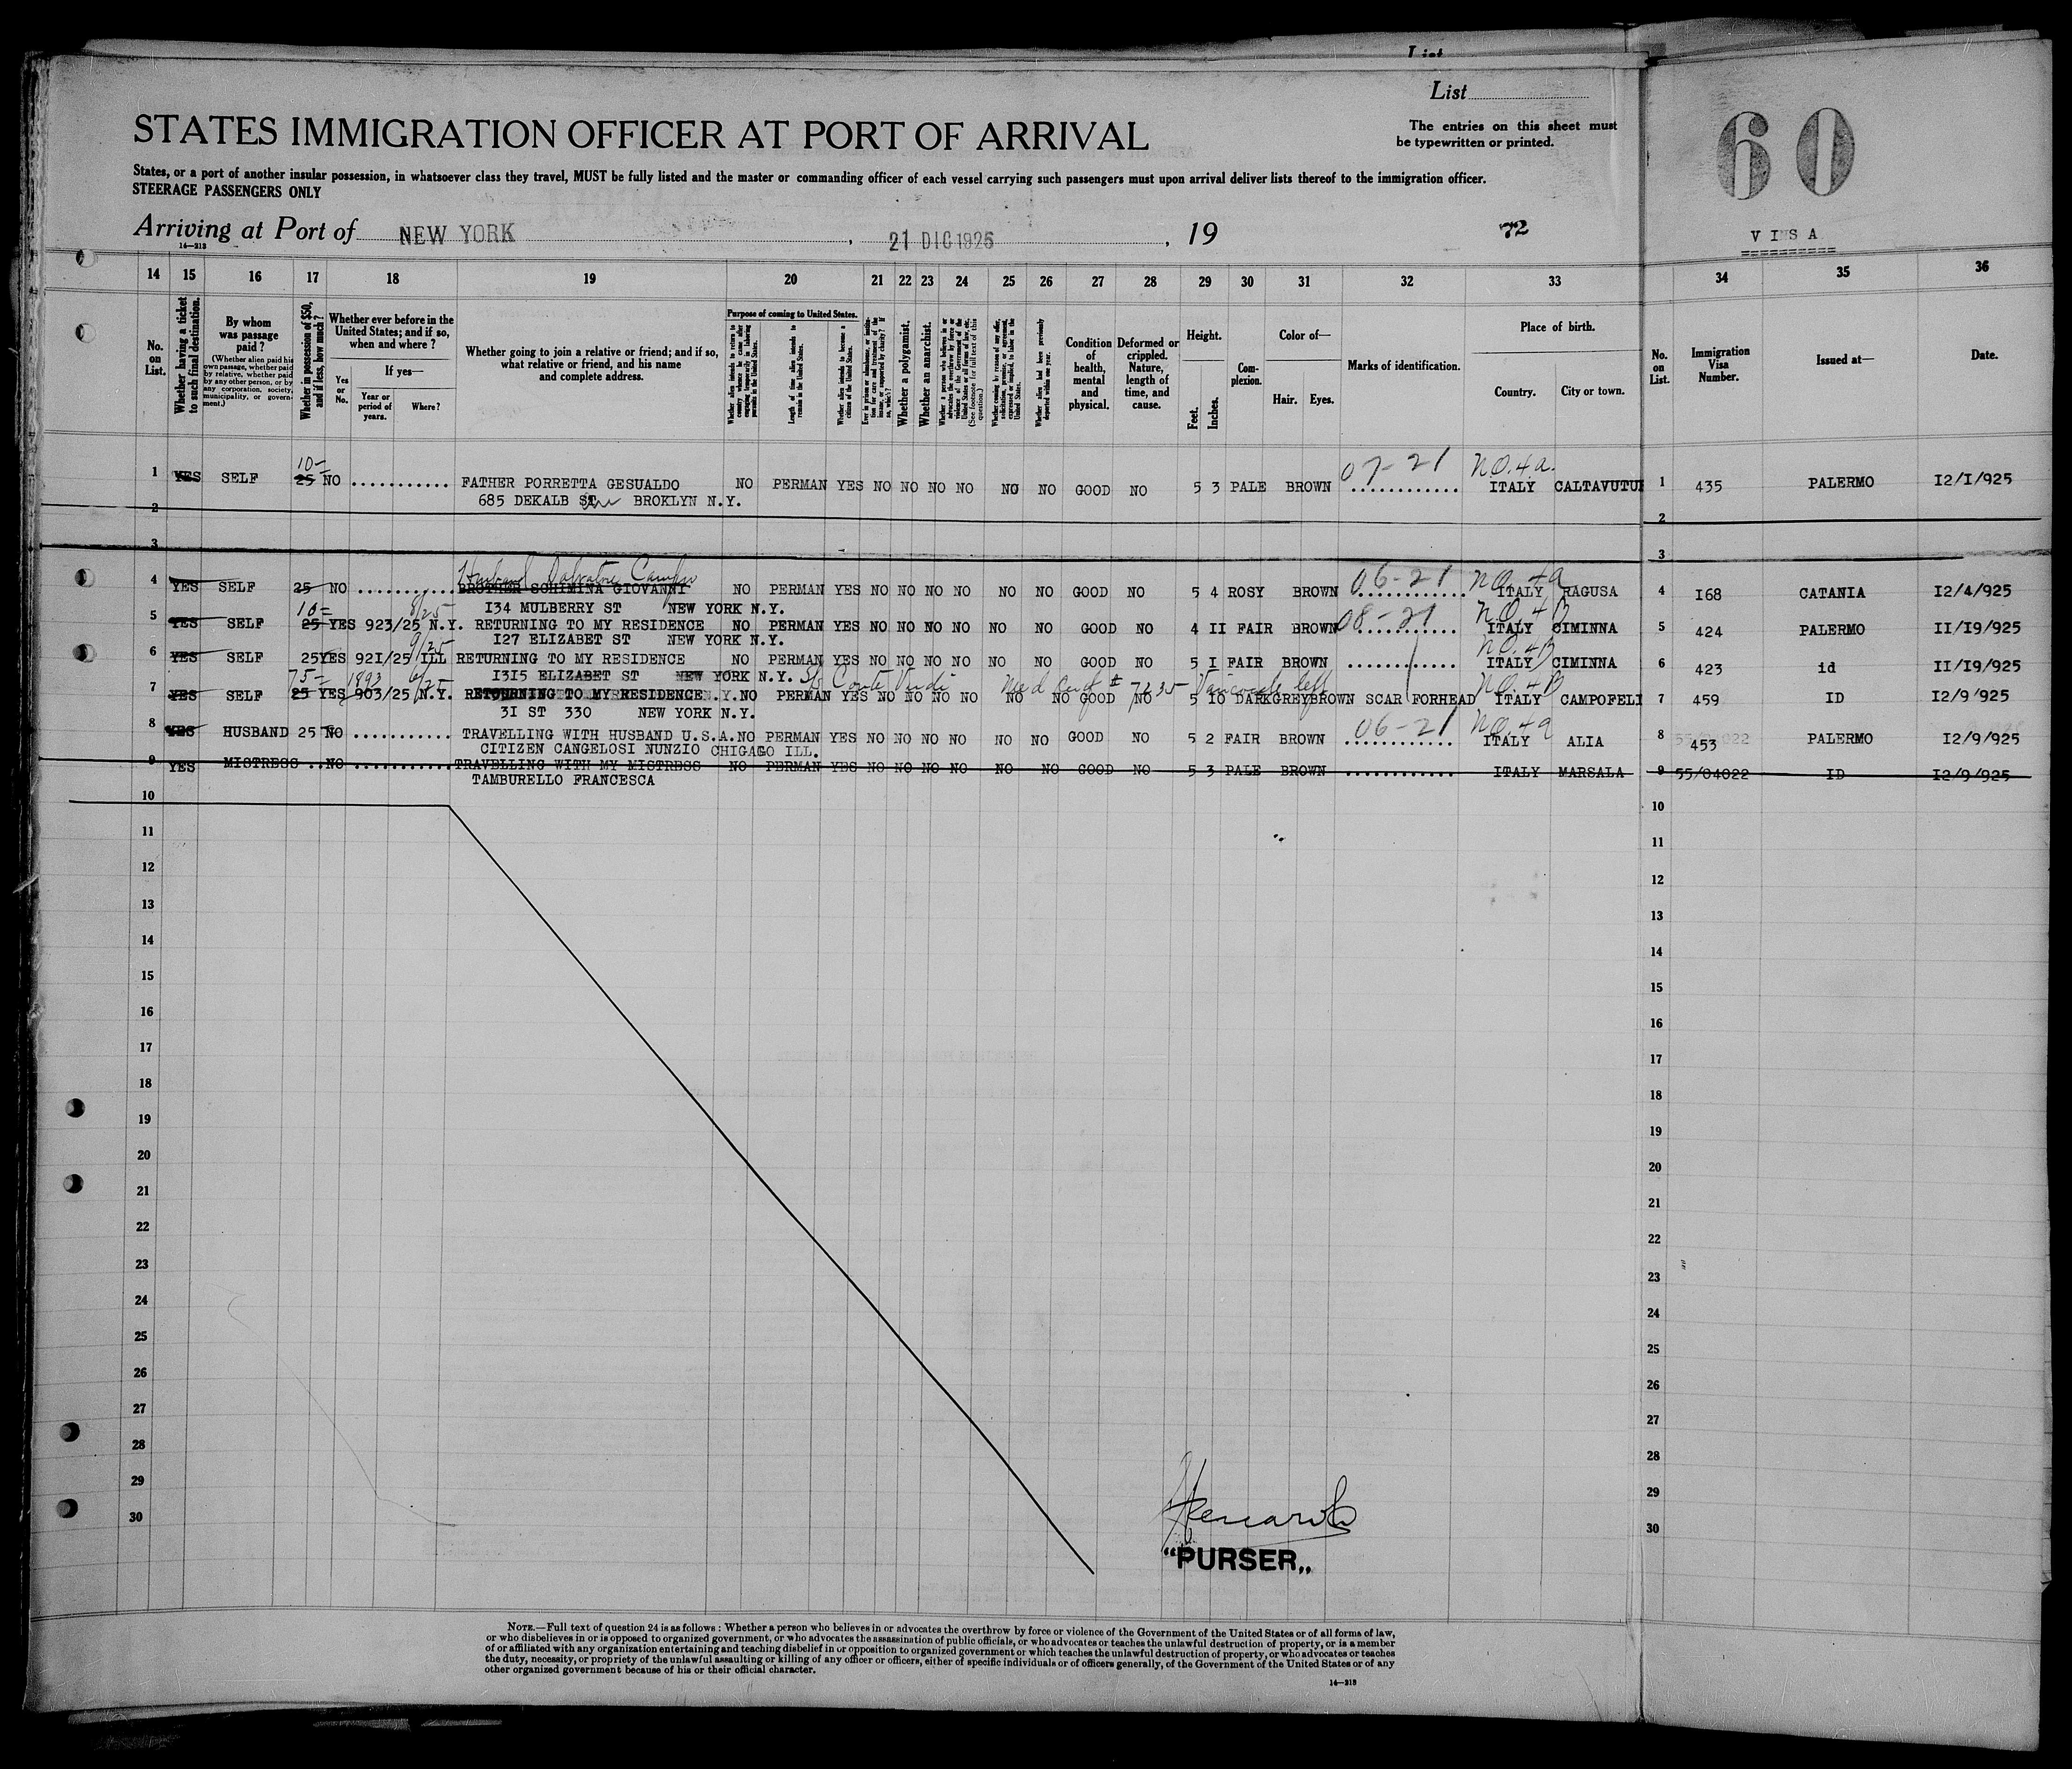 List
List
STATES IMMIGRATION OFFICER AT PORT OF ARRIVAL
The entries on this sheet must
be typewritten or printed.
60
States, or a port of another insular possession, in whatsoever class they travel, MUST be fully listed and the master or commanding officer of each vessel carrying such passengers must upon arrival deliver lists thereof to the immigration officer.
STEERAGE PASSENGERS ONLY
Arriving at Port of NEW YORK, 21 DIC 1925, 19
72
14—213
VISA
14 15 16 17 18 19 20 21 22 23 24 25 26 27 28 29 30 31 32 33 34 35 36
No. on List.
Whether having a ticket to such final destination.
By whom was passage paid?
(Whether alien paid his own passage, whether paid by relative, whether paid by any other person, or by any corporation, society, municipality, or government.)
Whether in possession of $50, and if less, how much?
Whether ever before in the United States; and if so, when and where?
Yes or No.
If yes—
Year or period of years.
Where?
Whether going to join a relative or friend; and if so, what relative or friend, and his name and complete address.
Purpose of coming to United States.
Whether alien intends to return to country whence he came after engaging temporarily in laboring pursuits in the United States.
Length of time alien intends to remain in the United States.
Whether alien intends to become a citizen of the United States.
Whether a polygamist.
Whether an anarchist.
Condition of health, mental and physical.
Deformed or crippled. Nature, length of time, and cause.
Height.
Feet.
Inches.
Complexion.
Color of—
Hair. Eyes.
Marks of identification.
Place of birth.
Country. City or town.
No. on List.
Immigration Visa Number.
Issued at—
Date.
10-
07-21 NO.4a.
1 YES SELF 25 NO ........... FATHER PORRETTA GESUALDO NO PERMAN YES NO NO NO NO NO NO GOOD NO 5 3 PALE BROWN ............ ITALY CALTAVUTU 1 435 PALERMO I2/I/925
685 DEKALB ST BROKLYN N.Y.
2 2
3 3
Husband Salvatore 06-21 NO.4a
4 YES SELF 25 NO ........... BROTHER SCHIMINA GIOVANNI NO PERMAN YES NO NO NO NO NO NO GOOD NO 5 4 ROSY BROWN ............ ITALY RAGUSA 4 I68 CATANIA I2/4/925
10= 8/25 I34 MULBERRY ST NEW YORK N.Y. 08-21 NO.4B
5 YES SELF 25 YES 923/25 N.Y. RETURNING TO MY RESIDENCE NO PERMAN YES NO NO NO NO NO NO GOOD NO 4 II FAIR BROWN ............ ITALY CIMINNA 5 424 PALERMO II/I9/925
9/25 I27 ELIZABET ST NEW YORK N.Y. NO.4B
6 YES SELF 25 YES 92I/25 ILL RETURNING TO MY RESIDENCE NO PERMAN YES NO NO NO NO NO NO GOOD NO 5 I FAIR BROWN ............ ITALY CIMINNA 6 423 id II/I9/925
75- 1893 6/25 I3I5 ELIZABET ST NEW YORK N.Y. SS Conte Verdi Med Cert # 7235 Varicocele left NO.4B
7 YES SELF 25 YES 903/25 N.Y. RETOURNING TO MY RESIDENCE N.Y. NO PERMAN YES NO NO NO NO NO NO GOOD NO 5 IO DARK GREY BROWN SCAR FORHEAD ITALY CAMPOFELI 7 459 ID I2/9/925
3I ST 330 NEW YORK N.Y. 06-21 NO.4a
8 YES HUSBAND 25 NO ........... TRAVELLING WITH HUSBAND U.S.A. NO PERMAN YES NO NO NO NO NO NO GOOD NO 5 2 FAIR BROWN ............ ITALY ALIA 8 453 PALERMO I2/9/925
CITIZEN CANGELOSI NUNZIO CHIGAGO ILL.
9 YES MISTRESS .. NO ........... TRAVELLING WITH MY MISTRESS NO PERMAN YES NO NO NO NO NO NO GOOD NO 5 3 PALE BROWN ............ ITALY MARSALA 9 55/04022 ID I2/9/925
TAMBURELLO FRANCESCA
10 10
11 11
12 12
13 13
14 14
15 15
16 16
17 17
18 18
19 19
20 20
21 21
22 22
23 23
24 24
25 25
26 26
27 27
28 28
29 29
30 30
"PURSER„
NOTE.—Full text of question 24 is as follows: Whether a person who believes in or advocates the overthrow by force or violence of the Government of the United States or of all forms of law,
or who disbelieves in or is opposed to organized government, or who advocates the assassination of public officials, or who advocates or teaches the unlawful destruction of property, or is a member
of or affiliated with any organization entertaining and teaching disbelief in or opposition to organized government or which teaches the unlawful destruction of property, or who advocates or teaches
the duty, necessity, or propriety of the unlawful assaulting or killing of any officer or officers, either of specific individuals or of officers generally, of the Government of the United States or of any
other organized government because of his or their official character.
14—213